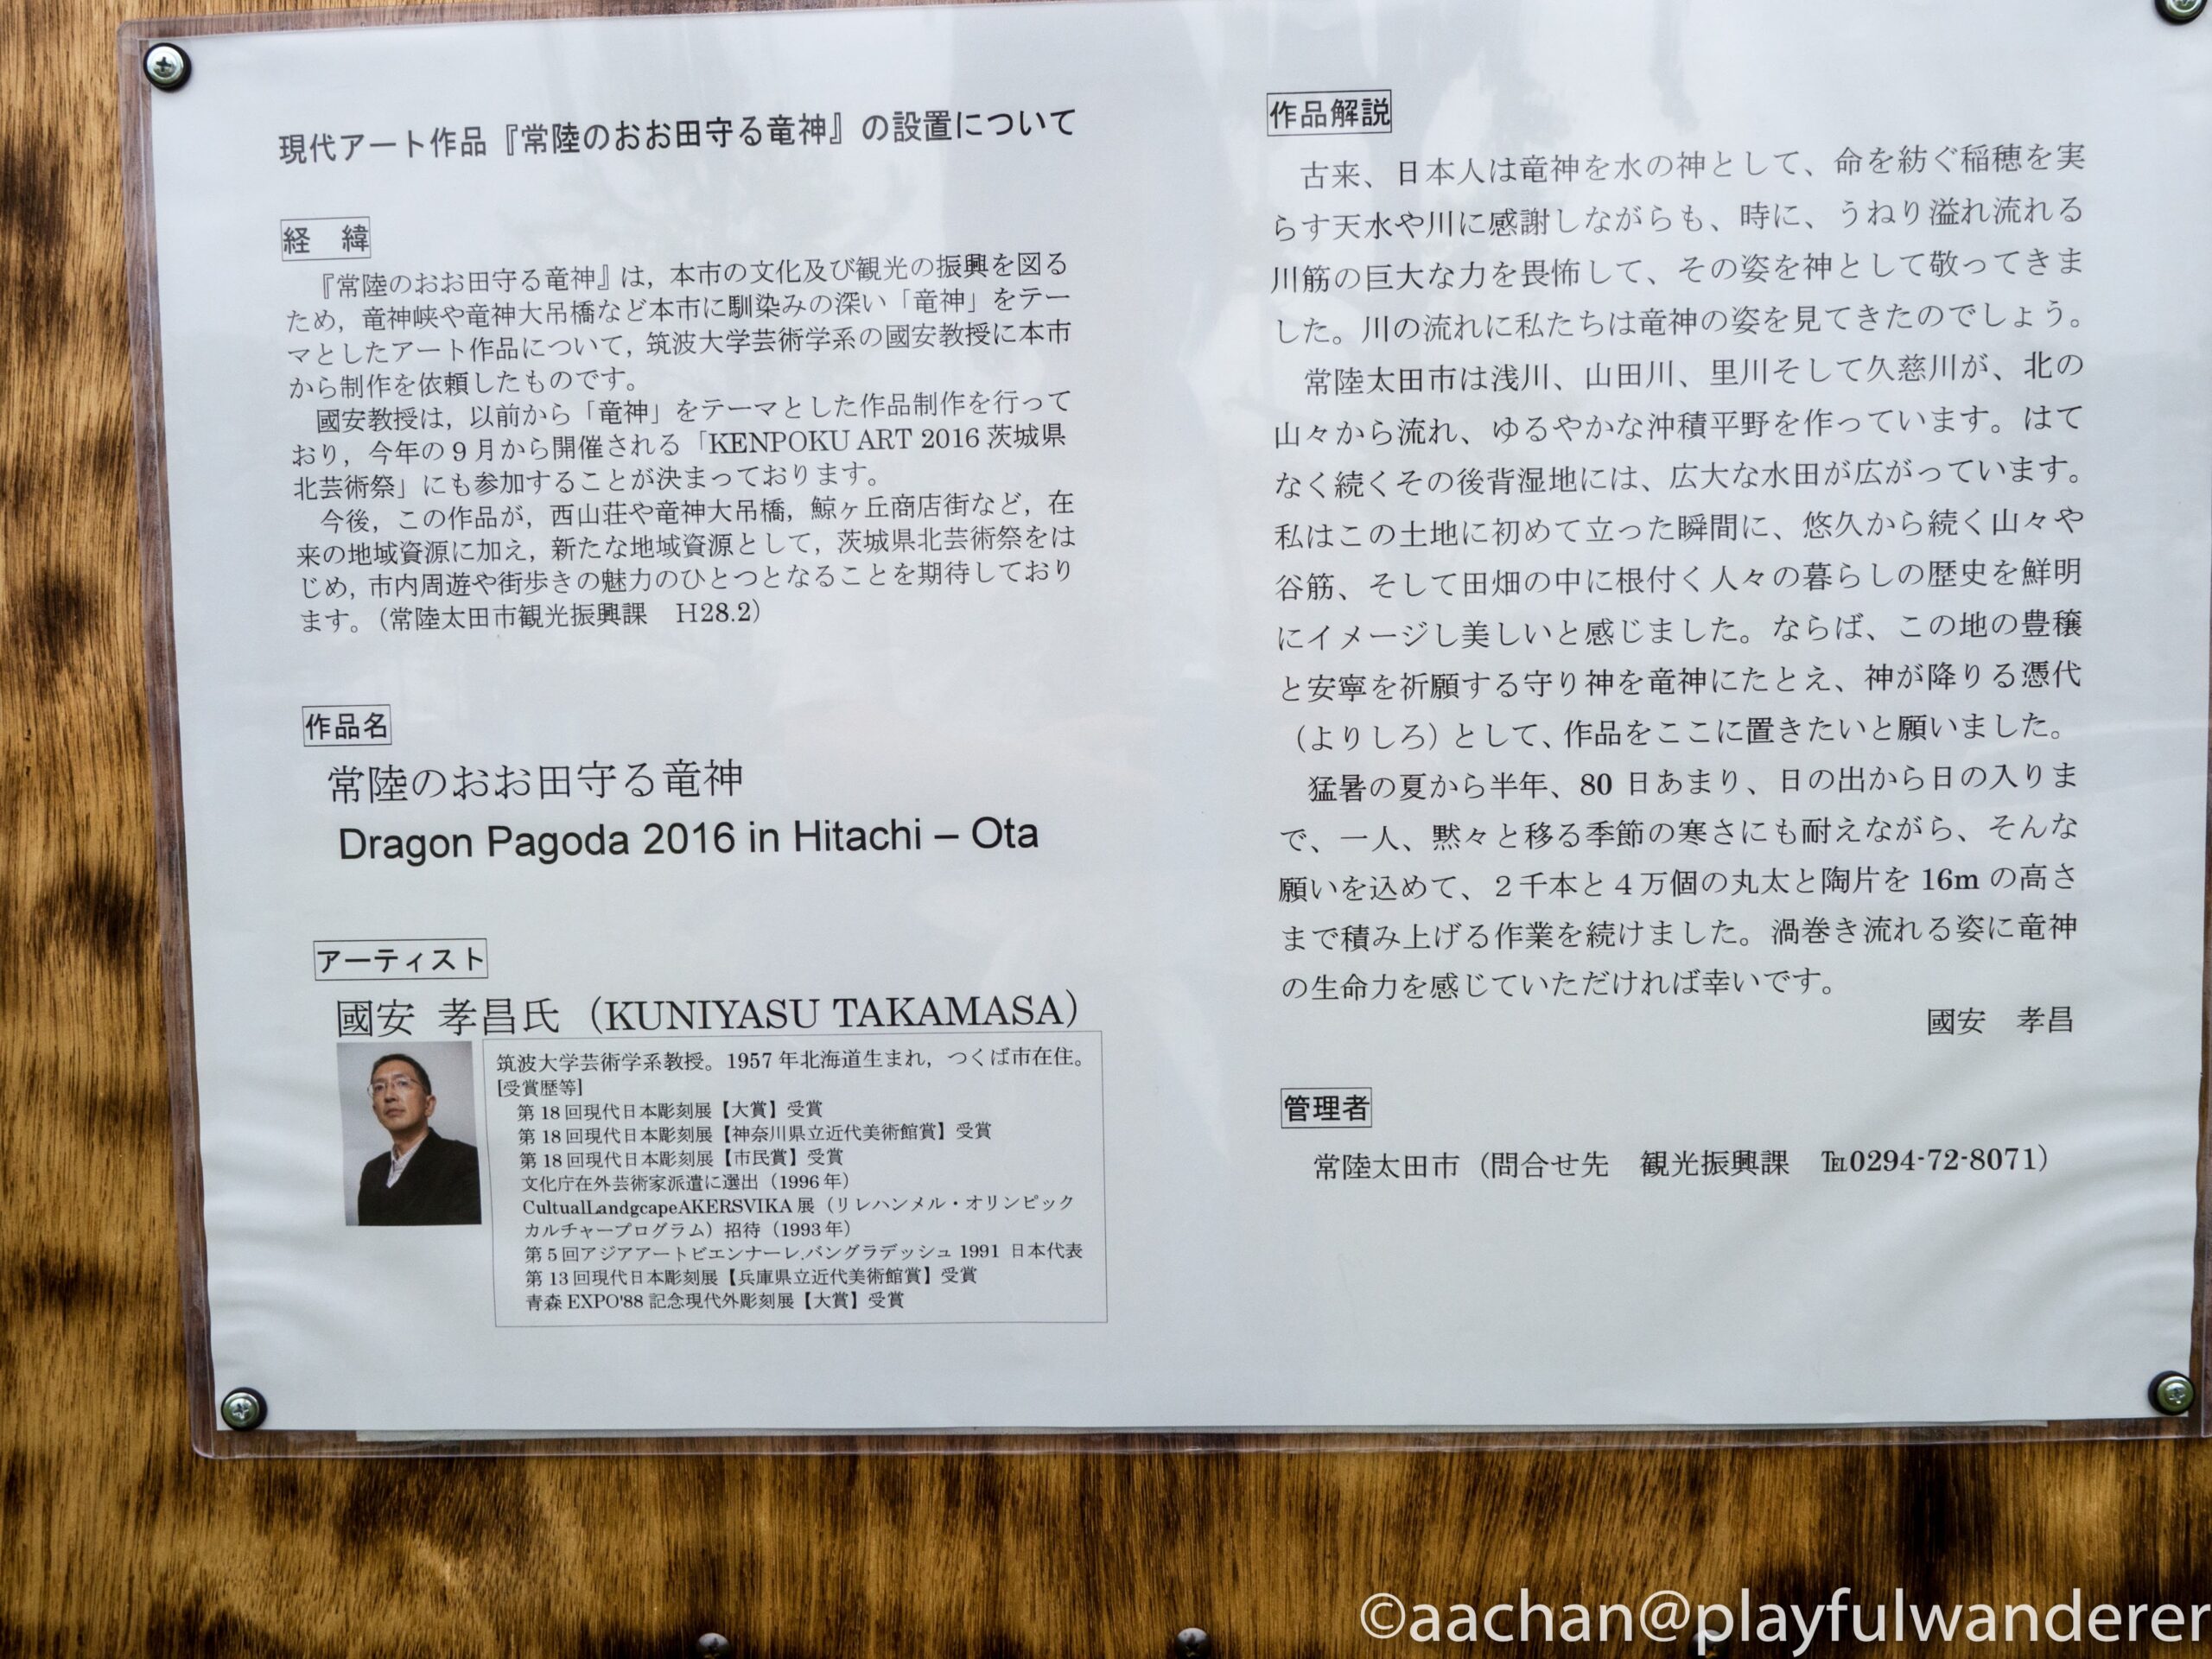 現代アート作品『常陸のおお田守る竜神』の設置について
経　緯
『常陸のおお田守る竜神』は，本市の文化及び観光の振興を図る
ため，竜神峡や竜神大吊橋など本市に馴染みの深い「竜神」をテー
マとしたアート作品について，筑波大学芸術学系の國安教授に本市
から制作を依頼したものです。
國安教授は，以前から「竜神」をテーマとした作品制作を行って
おり，今年の９月から開催される「KENPOKU ART 2016 茨城県
北芸術祭」にも参加することが決まっております。
今後，この作品が，西山荘や竜神大吊橋，鯨ヶ丘商店街など，在
来の地域資源に加え，新たな地域資源として，茨城県北芸術祭をは
じめ，市内周遊や街歩きの魅力のひとつとなることを期待しており
ます。（常陸太田市観光振興課　H28.2）
作品名
常陸のおお田守る竜神
Dragon Pagoda 2016 in Hitachi – Ota
アーティスト
國安 孝昌氏（KUNIYASU TAKAMASA）
筑波大学芸術学系教授。1957 年北海道生まれ，つくば市在住。
[受賞歴等]
第 18 回現代日本彫刻展【大賞】受賞
第 18 回現代日本彫刻展【神奈川県立近代美術館賞】受賞
第 18 回現代日本彫刻展【市民賞】受賞
文化庁在外芸術家派遣に選出（1996 年）
CultualLandgcapeAKERSVIKA 展（リレハンメル・オリンピック
カルチャープログラム）招待（1993 年）
第 5 回アジアアートビエンナーレ.バングラデッシュ 1991 日本代表
第 13 回現代日本彫刻展【兵庫県立近代美術館賞】受賞
青森 EXPO'88 記念現代外彫刻展【大賞】受賞
作品解説
古来、日本人は竜神を水の神として、命を紡ぐ稲穂を実
らす天水や川に感謝しながらも、時に、うねり溢れ流れる
川筋の巨大な力を畏怖して、その姿を神として敬ってきま
した。川の流れに私たちは竜神の姿を見てきたのでしょう。
常陸太田市は浅川、山田川、里川そして久慈川が、北の
山々から流れ、ゆるやかな沖積平野を作っています。はて
なく続くその後背湿地には、広大な水田が広がっています。
私はこの土地に初めて立った瞬間に、悠久から続く山々や
谷筋、そして田畑の中に根付く人々の暮らしの歴史を鮮明
にイメージし美しいと感じました。ならば、この地の豊穣
と安寧を祈願する守り神を竜神にたとえ、神が降りる憑代
（よりしろ）として、作品をここに置きたいと願いました。
猛暑の夏から半年、80 日あまり、日の出から日の入りま
で、一人、黙々と移る季節の寒さにも耐えながら、そんな
願いを込めて、２千本と４万個の丸太と陶片を 16m の高さ
まで積み上げる作業を続けました。渦巻き流れる姿に竜神
の生命力を感じていただければ幸いです。
國安　孝昌
管理者
常陸太田市（問合せ先　観光振興課　℡0294-72-8071）
©aachan@playfulwanderer